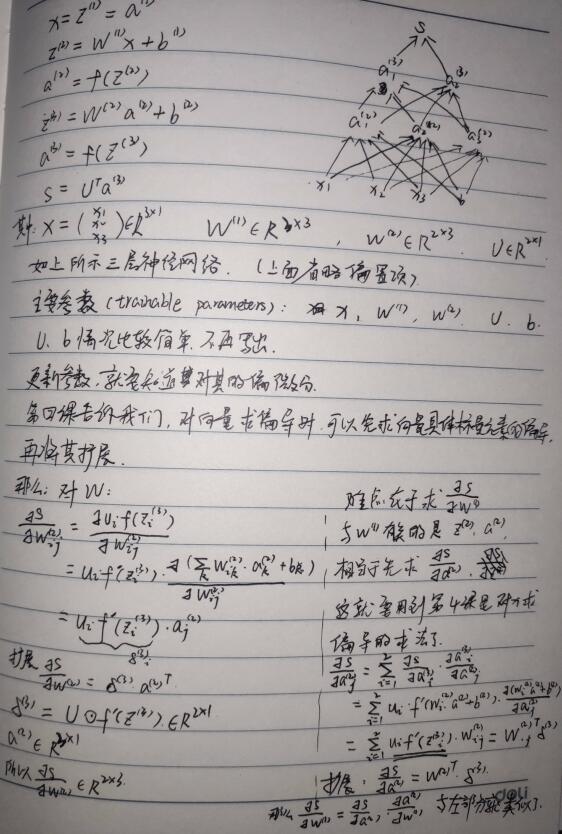 x = z^{(1)} = a^{(1)}
z^{(2)} = W^{(1)} x + b^{(1)}
a^{(2)} = f(z^{(2)})
z^{(3)} = W^{(2)} a^{(2)} + b^{(2)}
a^{(3)} = f(z^{(3)})
s = U^T a^{(3)}
s
a_1^{(3)} a_2^{(3)}
a_1^{(2)} a_2^{(2)} a_3^{(2)}
x_1 x_2 x_3 b
其中: x = (x_1 x_2 x_3) ∈ R^{3×1} W^{(1)} ∈ R^{3×3}, W^{(2)} ∈ R^{2×3}. U ∈ R^{2×1}
如上所示三层神经网络. (上面省略偏置项)
主要参数 (trainable parameters): x, W^{(1)}, W^{(2)}. U. b.
U. b 情况比较简单. 不再写出.
更新参数. 就要知道其对其的偏微分.
第四课告诉我们, 对向量求偏导时, 可以先求向量具体标量元素的偏导,
再将其扩展.
那么: 对 W:
∂s/∂W_{ij}^{(2)} = ∂u_i f(z_i^{(3)})/∂W_{ij}^{(2)}
= u_i f'(z_i^{(3)}) · ∂(Σ_k W_{ik}^{(2)} · a_k^{(2)} + b_k)/∂W_{ij}^{(2)}
= u_i f'(z_i^{(3)}) · a_j^{(2)}
δ_i^{(3)}
扩展 ∂s/∂W^{(2)} = δ^{(3)} · a^{(2)T}
δ^{(3)} = U ⊙ f'(z^{(3)}) ∈ R^{2×1}
a^{(2)} ∈ R^{3×1}
所以 ∂s/∂W^{(2)} ∈ R^{2×3}.
难点在于求 ∂s/∂W^{(1)}
与 W^{(1)} 有关的是 z^{(2)}, a^{(2)}.
相当于先求 ∂s/∂a^{(2)}.
这就要用到第4课是对求
偏导的求法了.
∂s/∂a_j^{(2)} = Σ_{i=1}^{2} ∂s/∂a_i^{(3)} · ∂a_i^{(3)}/∂a_j^{(2)}
= Σ_{i=1}^{2} u_i · f'(W_i^{(2)} a^{(2)} + b^{(2)}) · ∂(W_i^{(2)} a^{(2)} + b^{(2)})/∂a_j^{(2)}
= Σ_{i=1}^{2} u_i · f'(z_i^{(3)}) · W_{ij}^{(2)} = W_{·j}^{(2)T} δ^{(3)}
扩展: ∂s/∂a^{(2)} = W^{(2)T} · δ^{(3)}.
那么 ∂s/∂W^{(1)} = ∂s/∂a^{(2)} · ∂a^{(2)}/∂W^{(1)} 与左部分就类似了.